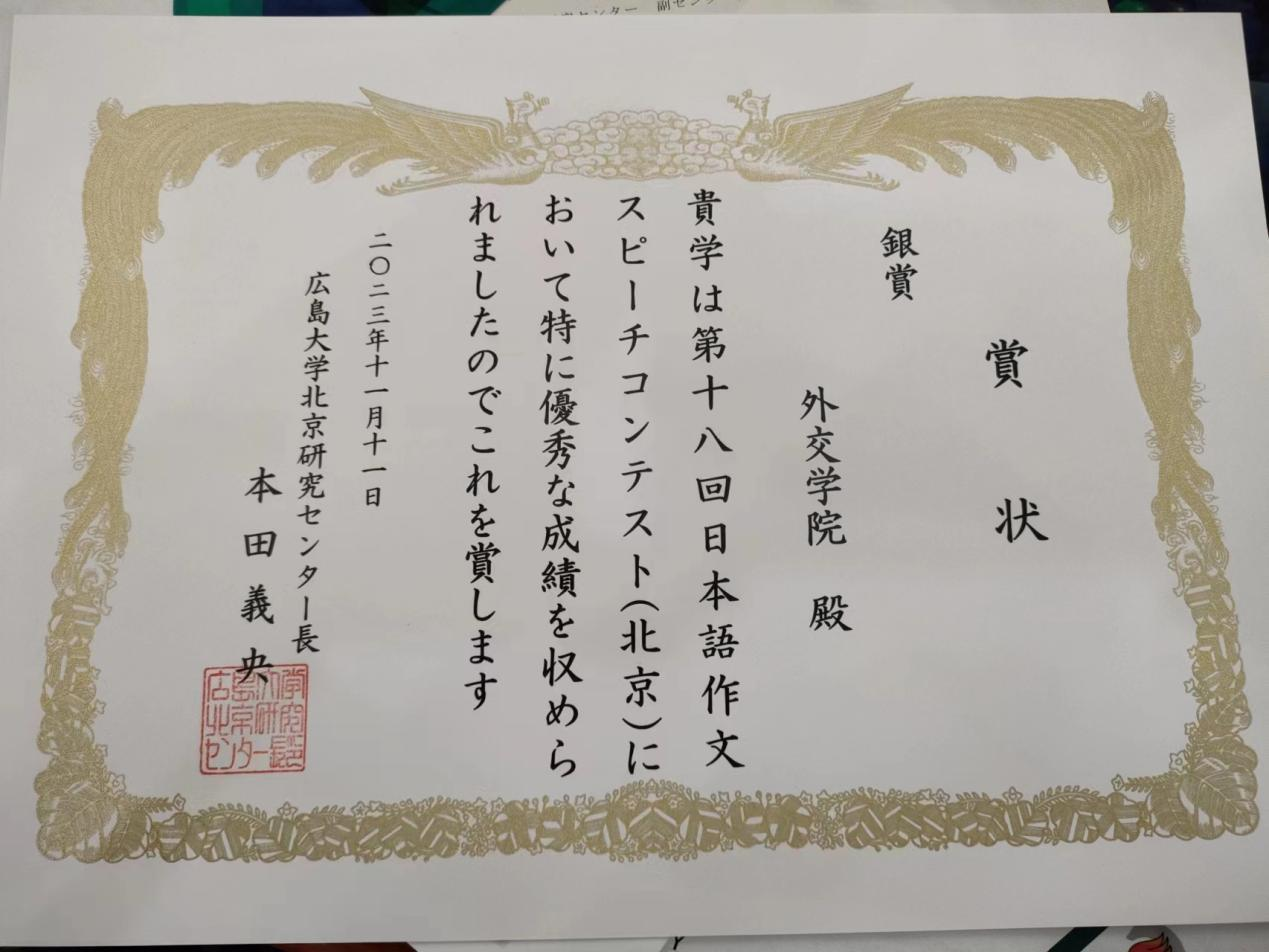 賞状
銀賞
外交学院 殿
貴学は第十八回日本語作文
スピーチコンテスト(北京)に
おいて特に優秀な成績を収めら
れましたのでこれを賞します
二〇二三年十一月十一日
広島大学北京研究センター長
本田義央